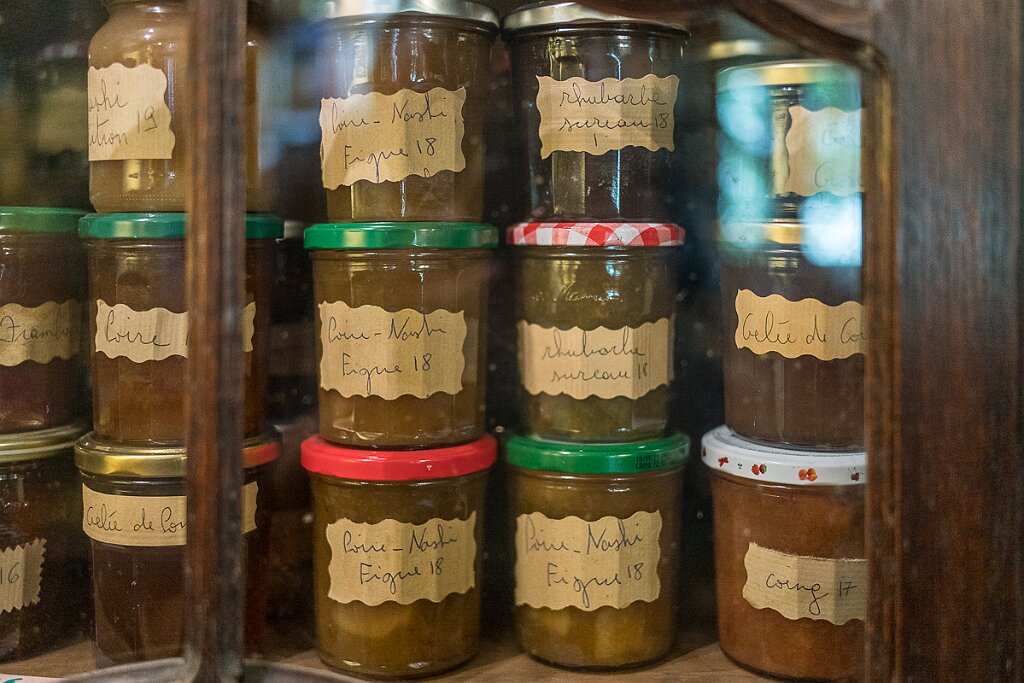 19
Poire-Nashi
Figue 18
rhubarbe
sureau 18
Framb
Poire
Poire-Nashi
Figue 18
rhubarbe
sureau 18
Gelée de Co
16
Gelée de
Poire-Nashi
Figue 18
Poire-Nashi
Figue 18
coing 17